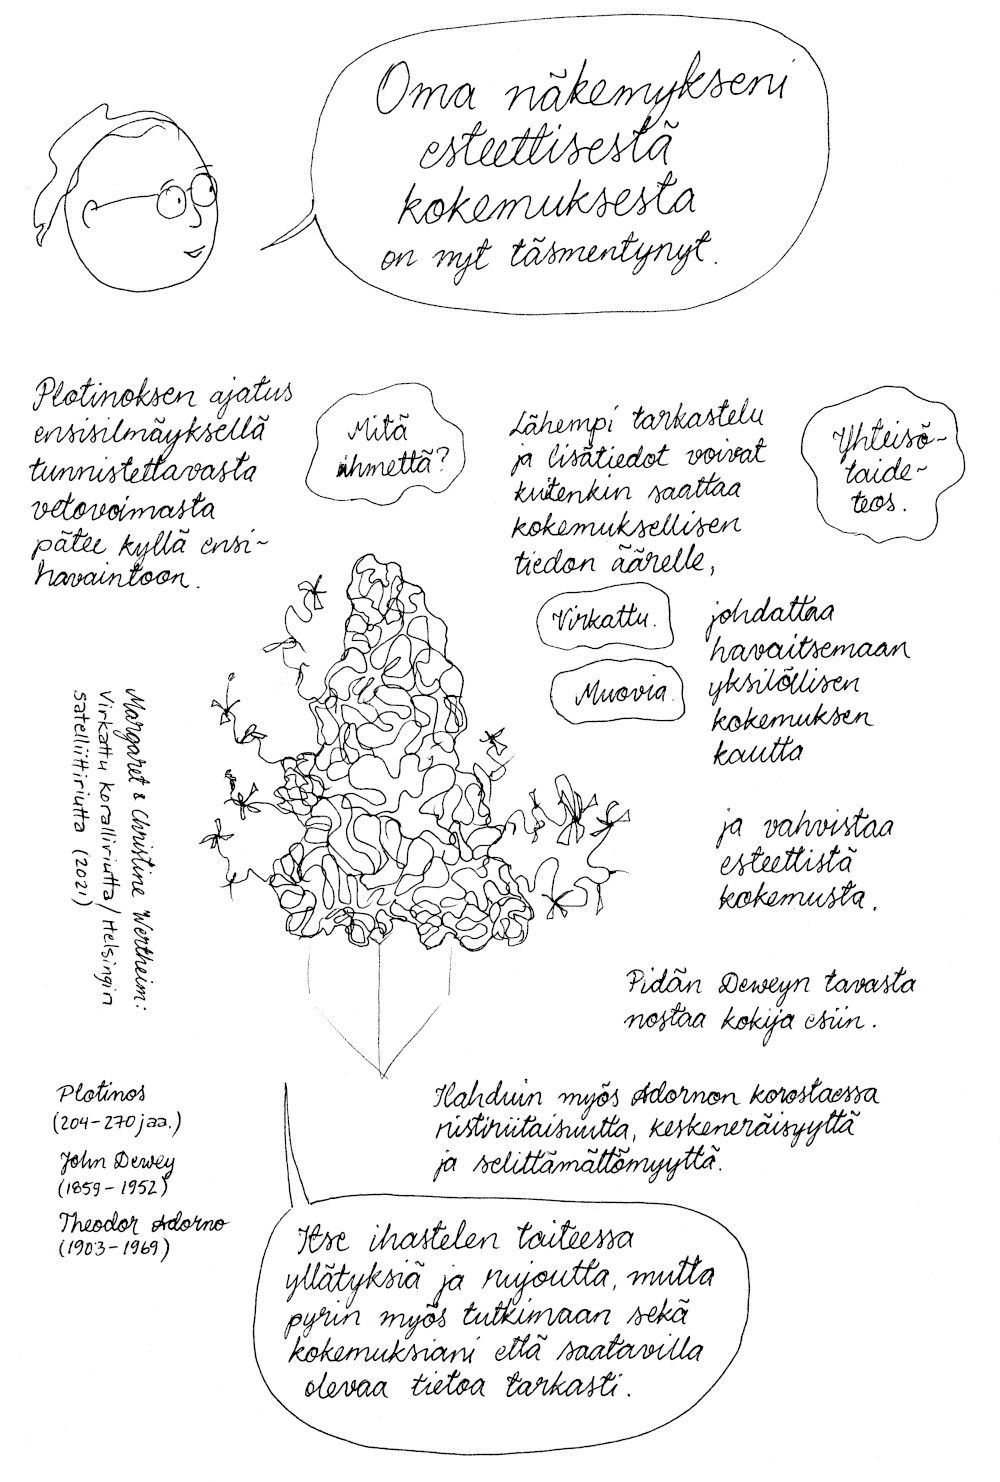 Oma näkemykseni
esteettisestä
kokemuksesta
on nyt täsmentynyt.
Plotinoksen ajatus
ensisilmäyksellä
tunnistettavasta
vetovoimasta
pätee kyllä ensi-
havaintoon.
Mitä
ihmettä?
Lähempi tarkastelu
ja lisätiedot voivat
kuitenkin saattaa
kokemuksellisen
tiedon äärelle,
Yhteisö-
taide-
teos.
Virkattu.
Muovia.
johdattaa
havaitsemaan
yksilöllisen
kokemuksen
kautta
ja vahvistaa
esteettistä
kokemusta.
Margaret & Christine Wertheim:
Virkattu koralliriutta / Helsingin
satelliittiriutta (2021)
Pidän Deweyn tavasta
nostaa kokija esiin.
Ilahduin myös Adornon korostaessa
ristiriitaisuutta, keskeneräisyyttä
ja selittämättömyyttä.
Plotinos
(204-270 jaa.)
John Dewey
(1859-1952)
Theodor Adorno
(1903-1969)
Itse ihastelen taiteessa
yllätyksiä ja rujoutta, mutta
pyrin myös tutkimaan sekä
kokemuksiani että saatavilla
olevaa tietoa tarkasti.